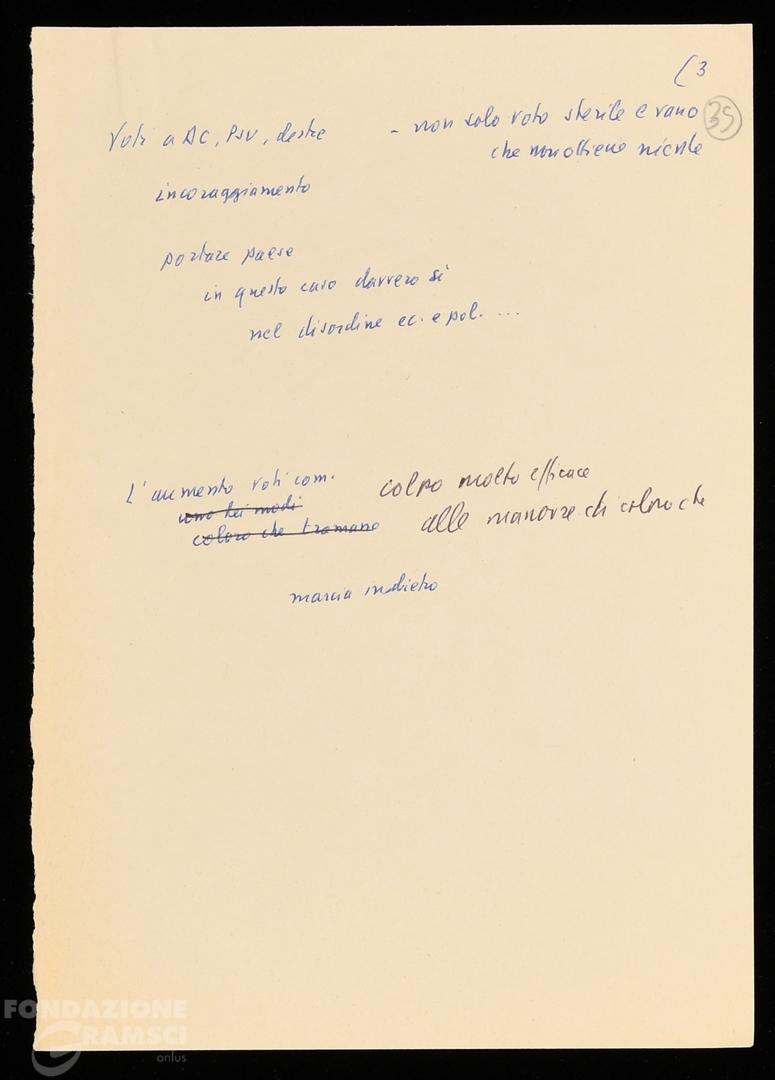 (3
35
Voti a DC, PSU, destre - non solo voto sterile e vano
che non ottiene niente
incoraggiamento
portare paese
in questo caso davvero sì
nel disordine ec. e pol. ...
L'aumento voti com. colpo molto efficace
uno dei modi
coloro che tramano alle manovre di coloro che
marcia indietro
FONDAZIONE
GRAMSCI
onlus